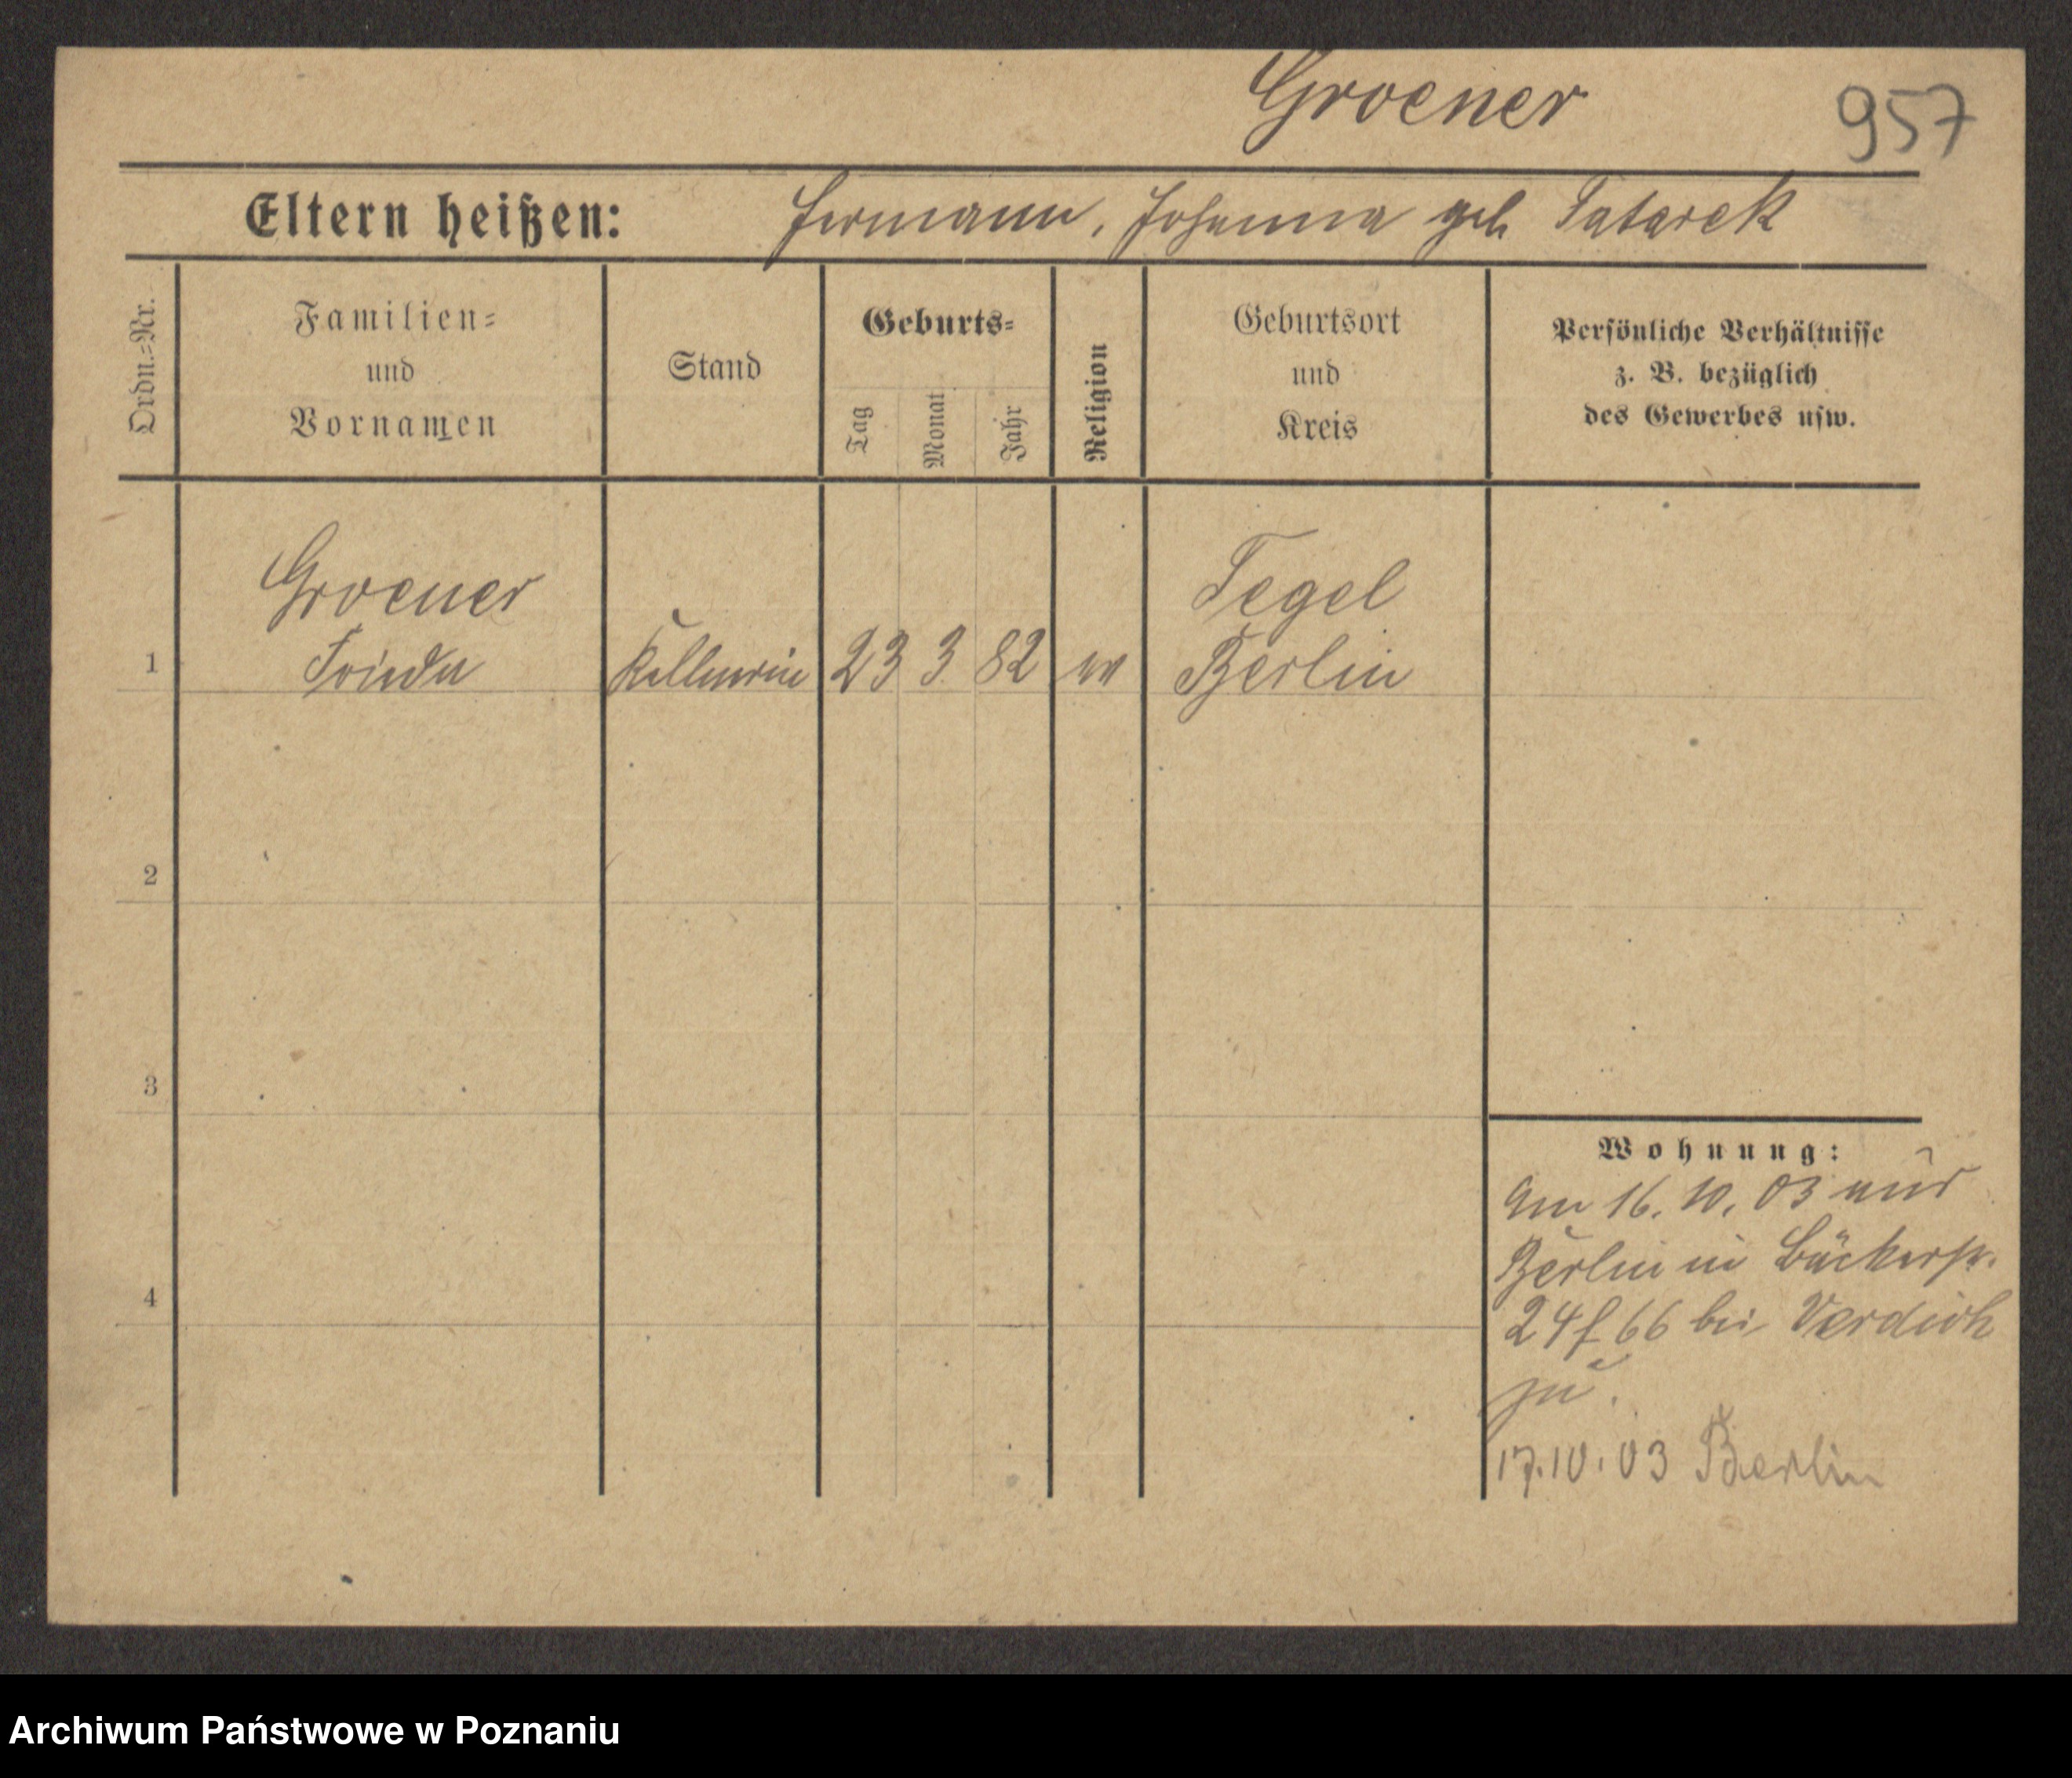 Groener
957
Eltern heißen: Hermann, Johanna geb Tatarek
Ordn.=Nr.
Familien=
und
Vornamen
Stand
Geburts=
Tag
Monat
Jahr
Religion
Geburtsort
und
Kreis
Persönliche Verhältnisse
z. B. bezüglich
des Gewerbes usw.
Groener
Frieda
1
Kellnerin
23 3 82
ev
Tegel
Berlin
2
3
4
Wohnung:
Am 16. 10. 03 aus
Berlin in Bäckerstr.
24 66 bei
zu.
17.10.03 Berlin
Archiwum Państwowe w Poznaniu